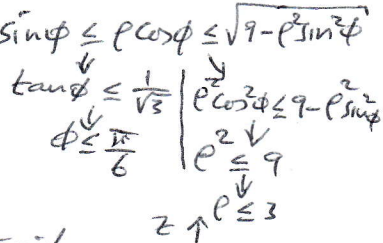 sinφ ≤ ρcosφ ≤ √(9-ρ²sin²φ)
tanφ ≤ 1/√3 | ρ²cos²φ ≤ 9-ρ²sin²φ
φ ≤ π/6 | ρ² ≤ 9
ρ ≤ 3
z